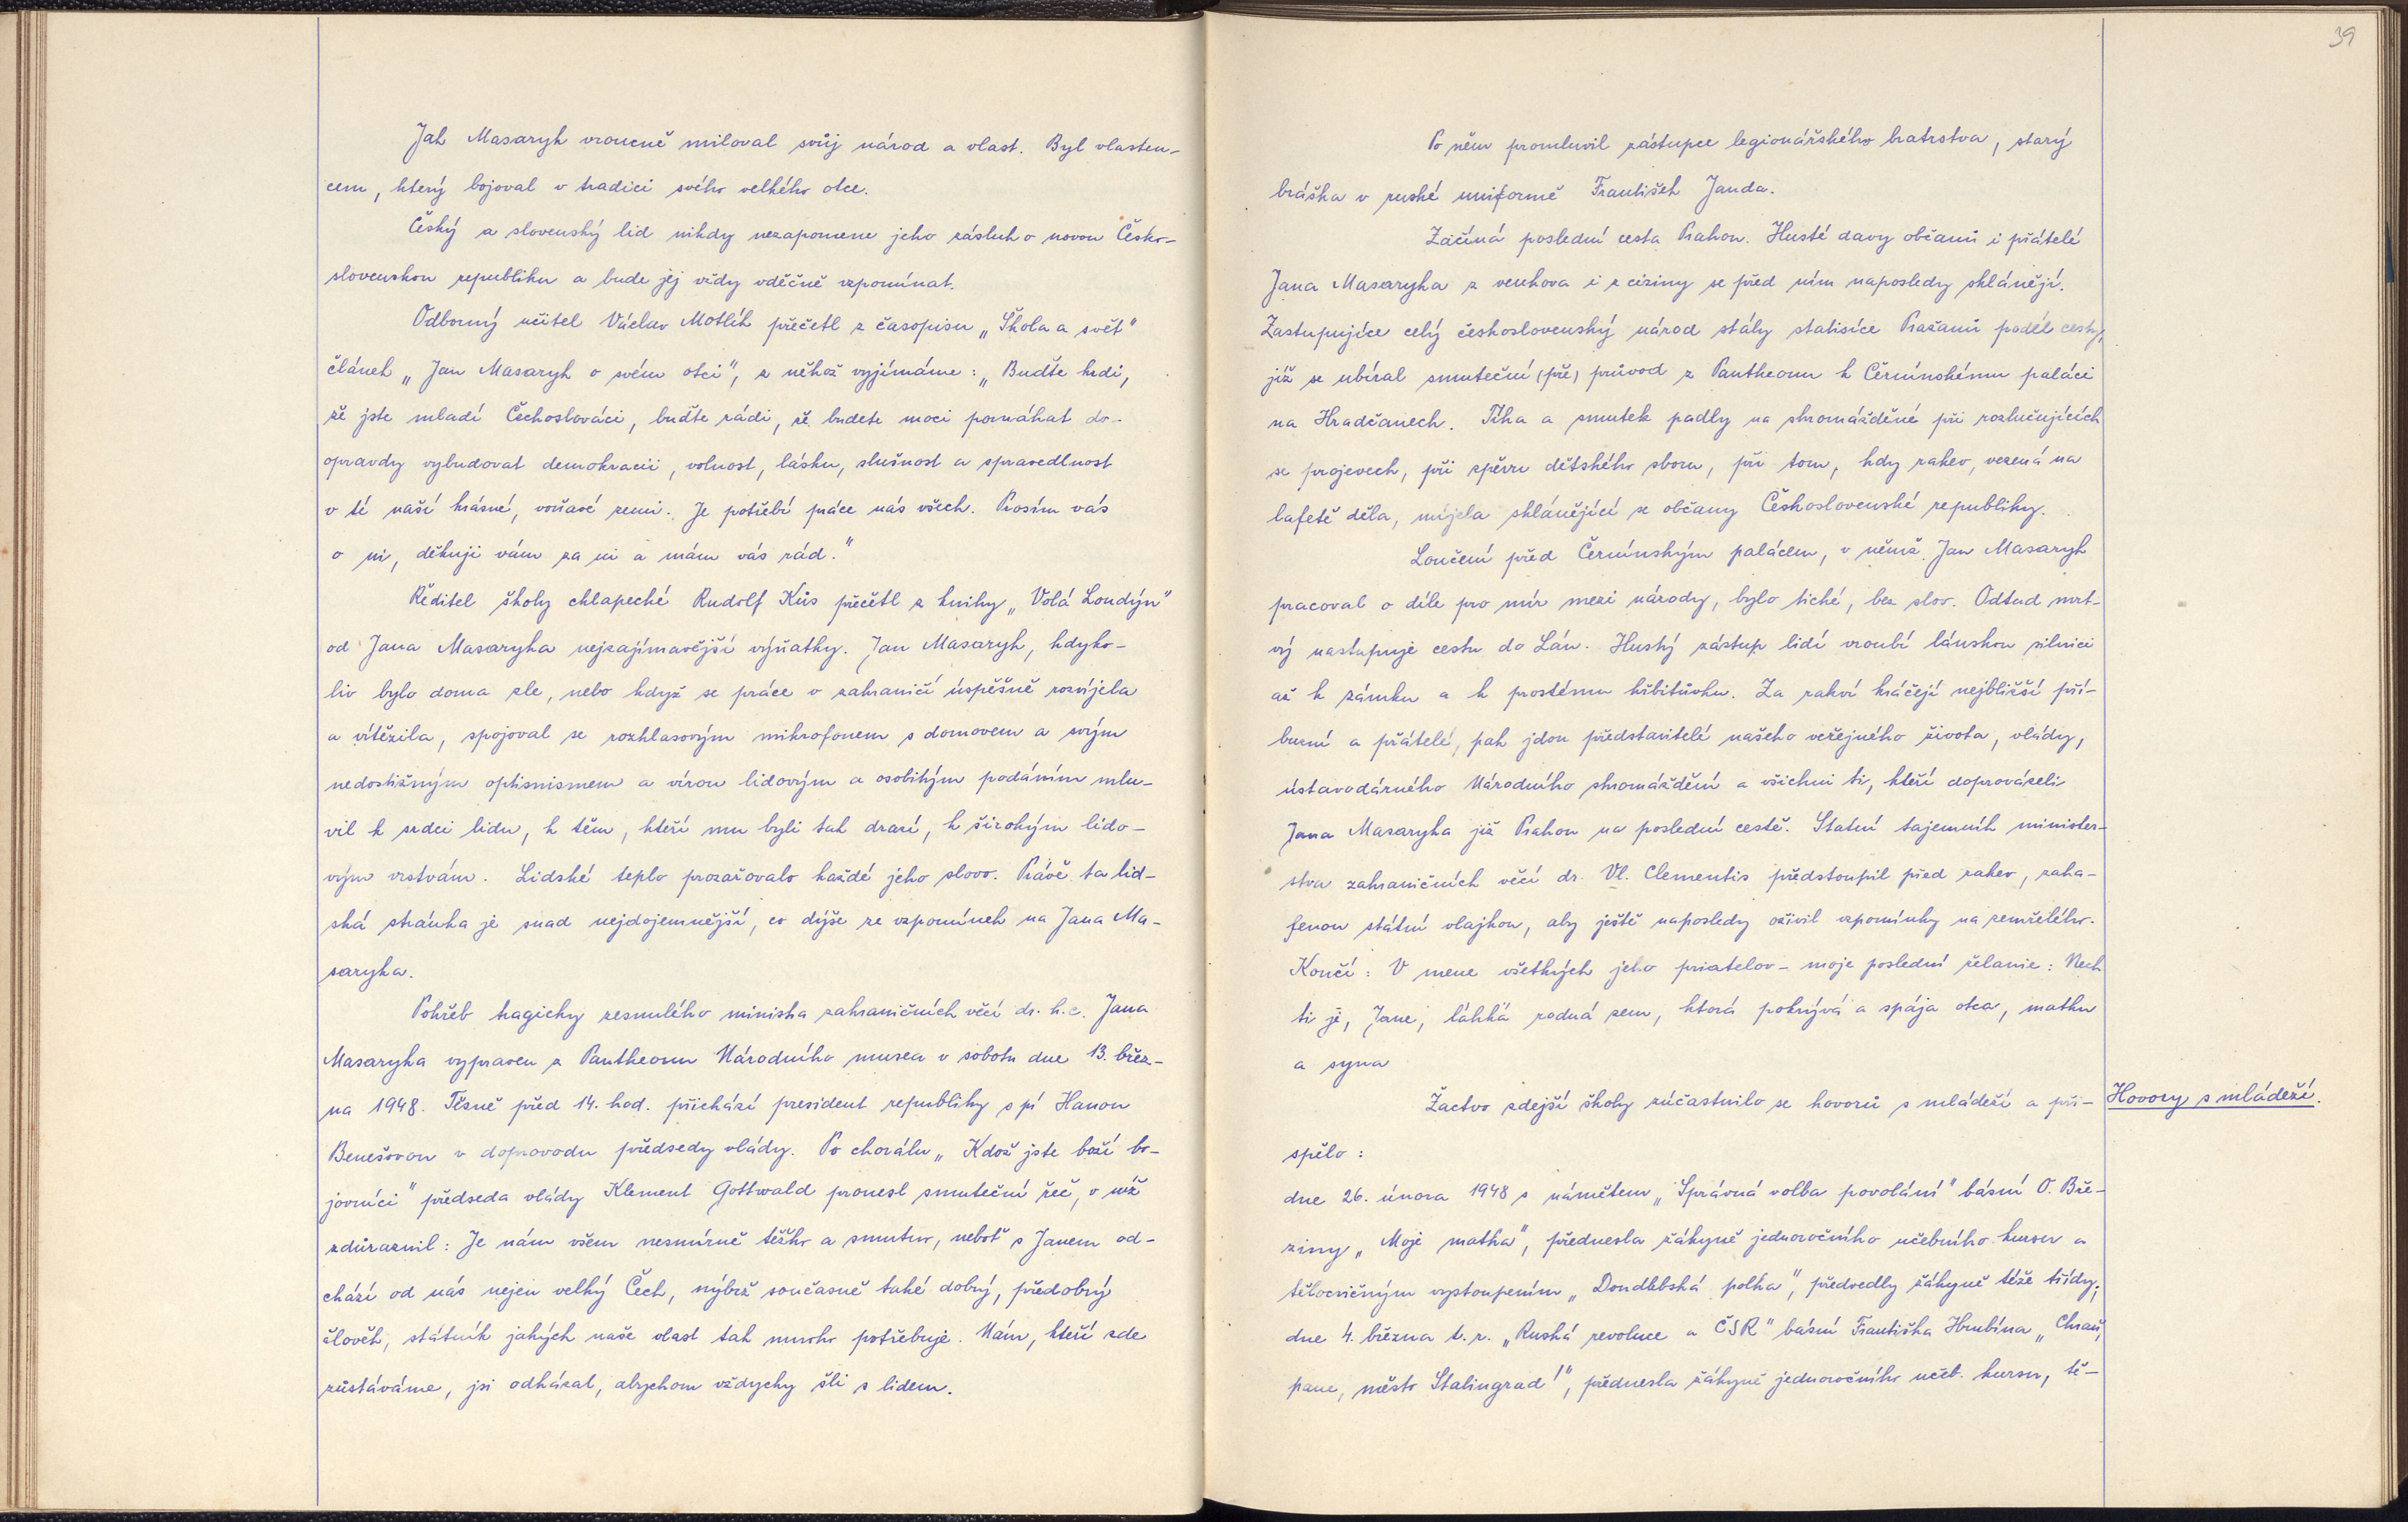 Jak Masaryk vroucně miloval svůj národ a vlast. Byl vlasten-
cem, který bojoval v tradici svého velkého otce.
Český a slovenský lid nikdy nezapomene jeho zásluh o novou Česko-
slovenskou republiku a bude jej vždy vděčně vzpomínat.
Odborný učitel Václav Motlík přečetl z časopisu „Škola a svět"
článek „Jan Masaryk o svém otci", z něhož vyjímáme: „Buďte hrdi,
že jste mladí Čechoslováci, buďte rádi, že budete moci pomáhat do-
opravdy vybudovat demokracii, volnost, lásku, slušnost a spravedlnost
v té naší krásné, voňavé zemi. Je potřebí práce nás všech. Prosím vás
o ni, děkuji vám za ni a mám vás rád."
Ředitel školy chlapecké Rudolf Kůs přečetl z knihy „Volá Londýn"
od Jana Masaryka nejzajímavější výňatky. Jan Masaryk, kdyko-
liv bylo doma zle, nebo když se práce v zahraničí úspěšně rozvíjela
a vítězila, spojoval se rozhlasovým mikrofonem s domovem a svým
nedostižným optimismem a vírou lidovým a osobitým podáním mlu-
vil k srdci lidu, k těm, kteří mu byli tak drazí, k širokým lido-
vým vrstvám. Lidské teplo prozařovalo každé jeho slovo. Právě ta lid-
ská stránka je snad nejdojemnější, co dýše ze vzpomínek na Jana Ma-
saryka.
Pohřeb tragicky zesnulého ministra zahraničních věcí dr. h.c. Jana
Masaryka vypraven z Pantheonu Národního musea v sobotu dne 13. břez-
na 1948. Těsně před 14. hod. přichází president republiky s pí Hanou
Benešovou v doprovodu předsedy vlády. Po chorálu „Kdož jste boží bo-
jovníci" předseda vlády Klement Gottwald pronesl smuteční řeč, v níž
zdůraznil: Je nám všem nesmírně těžko a smutno, neboť s Janem od-
chází od nás nejen velký Čech, nýbrž současně také dobrý, předobrý
člověk, státník jakých naše vlast tak mnoho potřebuje. Nám, kteří zde
zůstáváme, jsi odkázal, abychom vždycky šli s lidem.
39
Po něm promluvil zástupce legionářského bratrstva, starý
bráška v ruské uniformě František Janda.
Začíná poslední cesta Prahou. Husté davy občanů i přátelé
Jana Masaryka z venkova i z ciziny se před ním naposledy sklánějí.
Zastupujíce celý československý národ stály statisíce Pražanů podél cesty,
jíž se ubíral smuteční (pře) průvod z Pantheonu k Černínskému paláci
na Hradčanech. Tíha a smutek padly na shromážděné při rozlučujících
se projevech, při zpěvu dětského sboru, při tom, kdy rakev, vezená na
lafetě děla, míjela sklánějící se občany Československé republiky.
Loučení před Černínským palácem, v němž Jan Masaryk
pracoval o díle pro mír mezi národy, bylo tiché, bez slov. Odtud mrt-
vý nastupuje cestu do Lán. Hustý zástup lidí vroubí lánskou silnici
až k zámku a k prostému hřbitůvku. Za rakví kráčejí nejbližší pří-
buzní a přátelé, pak jdou představitelé našeho veřejného života, vlády,
ústavodárného Národního shromáždění a všichni ti, kteří doprovázeli
Jana Masaryka již Prahou na poslední cestě. Statní tajemník minister-
stva zahraničních věcí dr. Vl. Clementis předstoupil před rakev, zaha-
lenou státní vlajkou, aby ještě naposledy oživil vzpomínky na zemřelého.
Končí: V mene všetkých jeho priatelov - moje poslední želanie: Nech
ti je, Jane, láhká rodná zem, ktorá pokrývá a spája otca, matku
a syna
Žactvo zdejší školy zúčastnilo se hovorů s mládeží a při-
Hovory s mládeží.
spělo:
dne 26. února 1948 s námětem „Správná volba povolání" básní O. Bře-
ziny „Moje matka", přednesla žákyně jednoročního učebního kursu a
tělocvičným vystoupením „Doudlebská polka", předvedly žákyně téže třídy;
dne 4. března t.r. „Ruská revoluce a ČSR" básní Františka Hrubína „Chraň,
pane, město Stalingrad!", přednesla žákyně jednoročního učeb. kursu, tě-